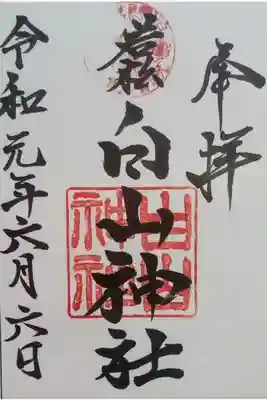 奉拝
白山神社
白山
神社
令和元年六月六日